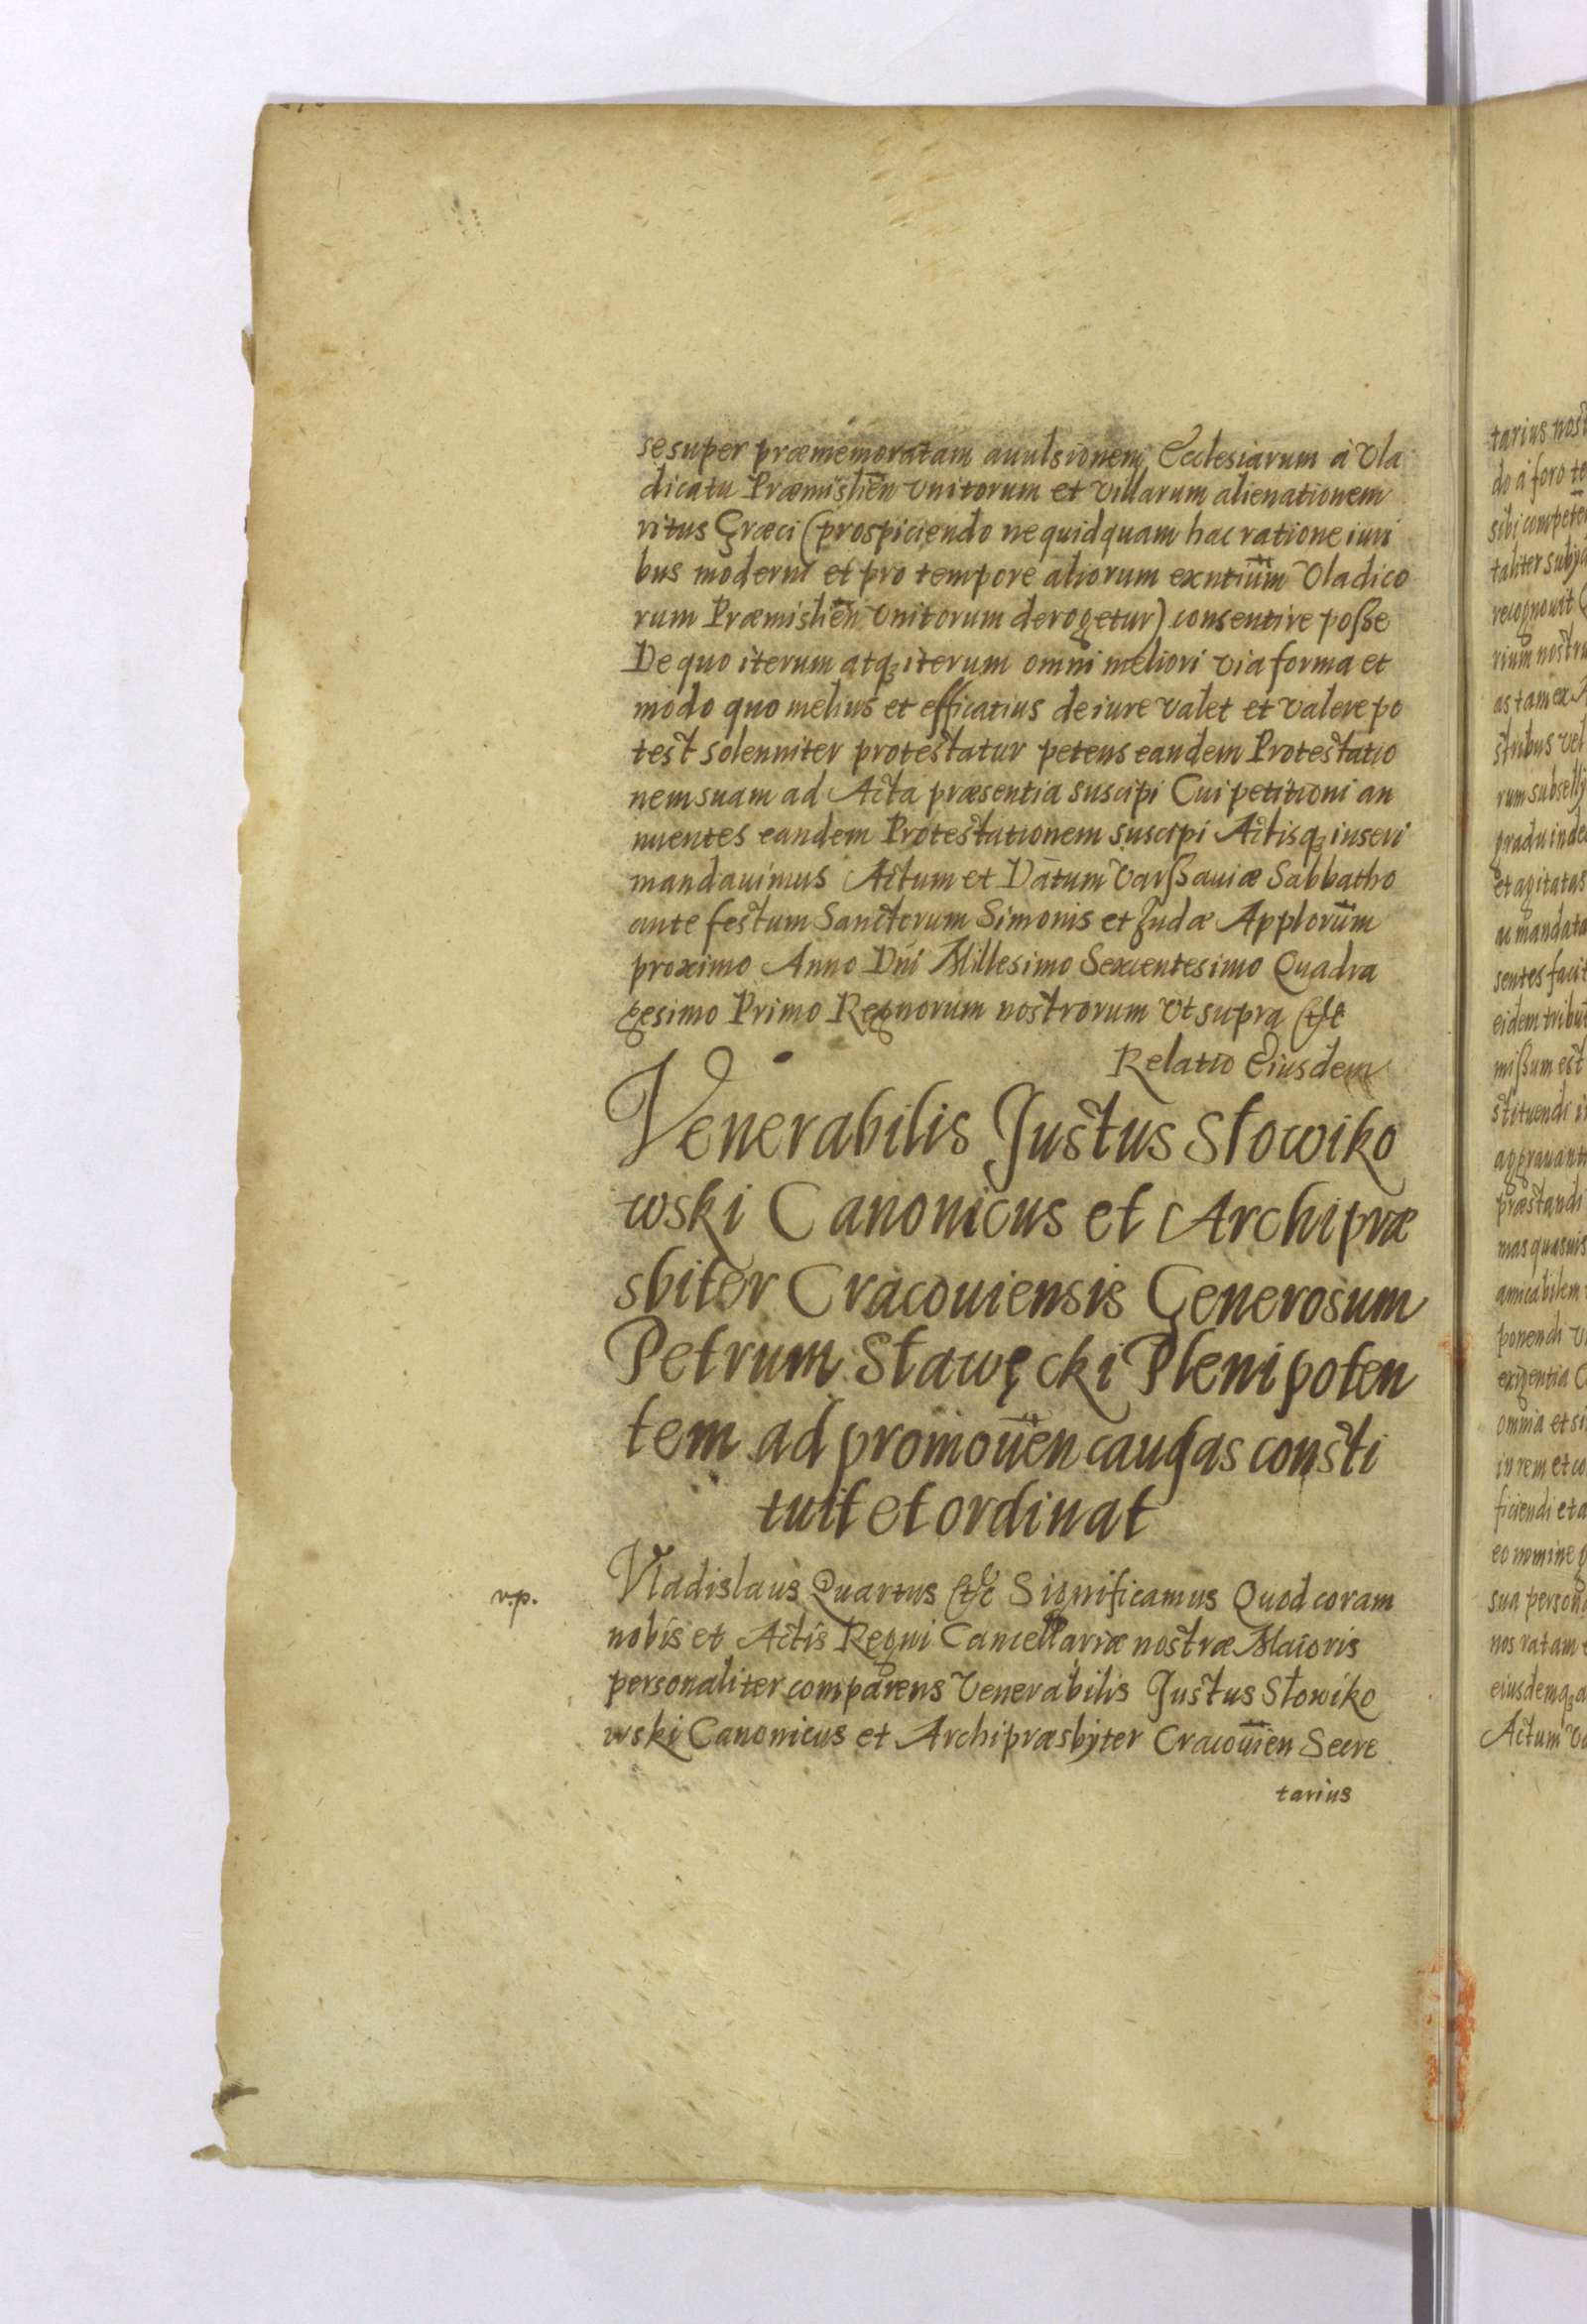 se super præmemoratam auulsionem Ecclesiarum à Vla
dicatu Præmislien̄ Vnitorum et Villarum alienationem
ritus Græci (prospiciendo ne quidquam hac ratione iuri
bus moderni et pro tempore aliorum exn̄tium Vladico
rum Præmislien̄ Vnitorum derogetur) consentire poße
De quo iterum atqꝫ iterum omni meliori via forma et
modo quo melius et efficatius de iure valet et valere po
test solenniter protestatur petens eandem Protestatio
nem suam ad Acta præsentia suscipi Cui petitioni an
nuentes eandem Protestationem suscipi Actisqꝫ inseri
mandauimus Actum et Datum Varßauiæ Sabbatho
ante festum Sanctorum Simonis et Judæ Applorum̄
proximo Anno Dni Millesimo Sexcentesimo Quadra
gesimo Primo Regnorum nostrorum Vt supra etc
Relatio Eiusdem
Venerabilis Justus Słowiko
wski Canonicus et Archipræ
sbiter Cracouiensis Generosum
Petrum Sławęcki Plenipoten
tem ad promouen̄ causas consti
tuit et ordinat
v.p.
Vladislaus Quartus etc Significamus Quod coram
nobis et Actis Regni Cancellariæ nostræ Maioris
personaliter comparens Venerabilis Justus Słowiko
wski Canonicus et Archipræsbyter Cracouien̄ Secre
tarius
tarius nost
do a foro
eidem tribu
mißum est
stituendi i
aggrauant
præstandi
mas quasuis
amicabilem
ponendi
exigentia
omnia et si
in rem et
ficiendi et
eo nomine
sua person
nos ratam
eiusdemqꝫ
Actum